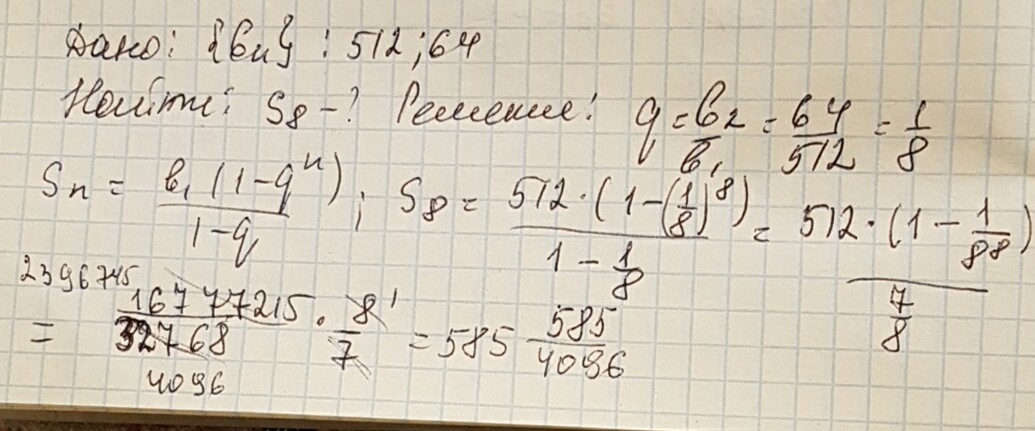 Дано: {bn} : 512; 64
Найти: S8 - ? Решение: q = b2/b1 = 64/512 = 1/8
Sn = b1 (1-q^n)/(1-q); S8 = 512·(1-(1/8)^8)/(1-1/8) = 512·(1-1/8^8)/(7/8)
2396745
= 16777215/32768 · 8/7 = 585 585/4096
1
4096